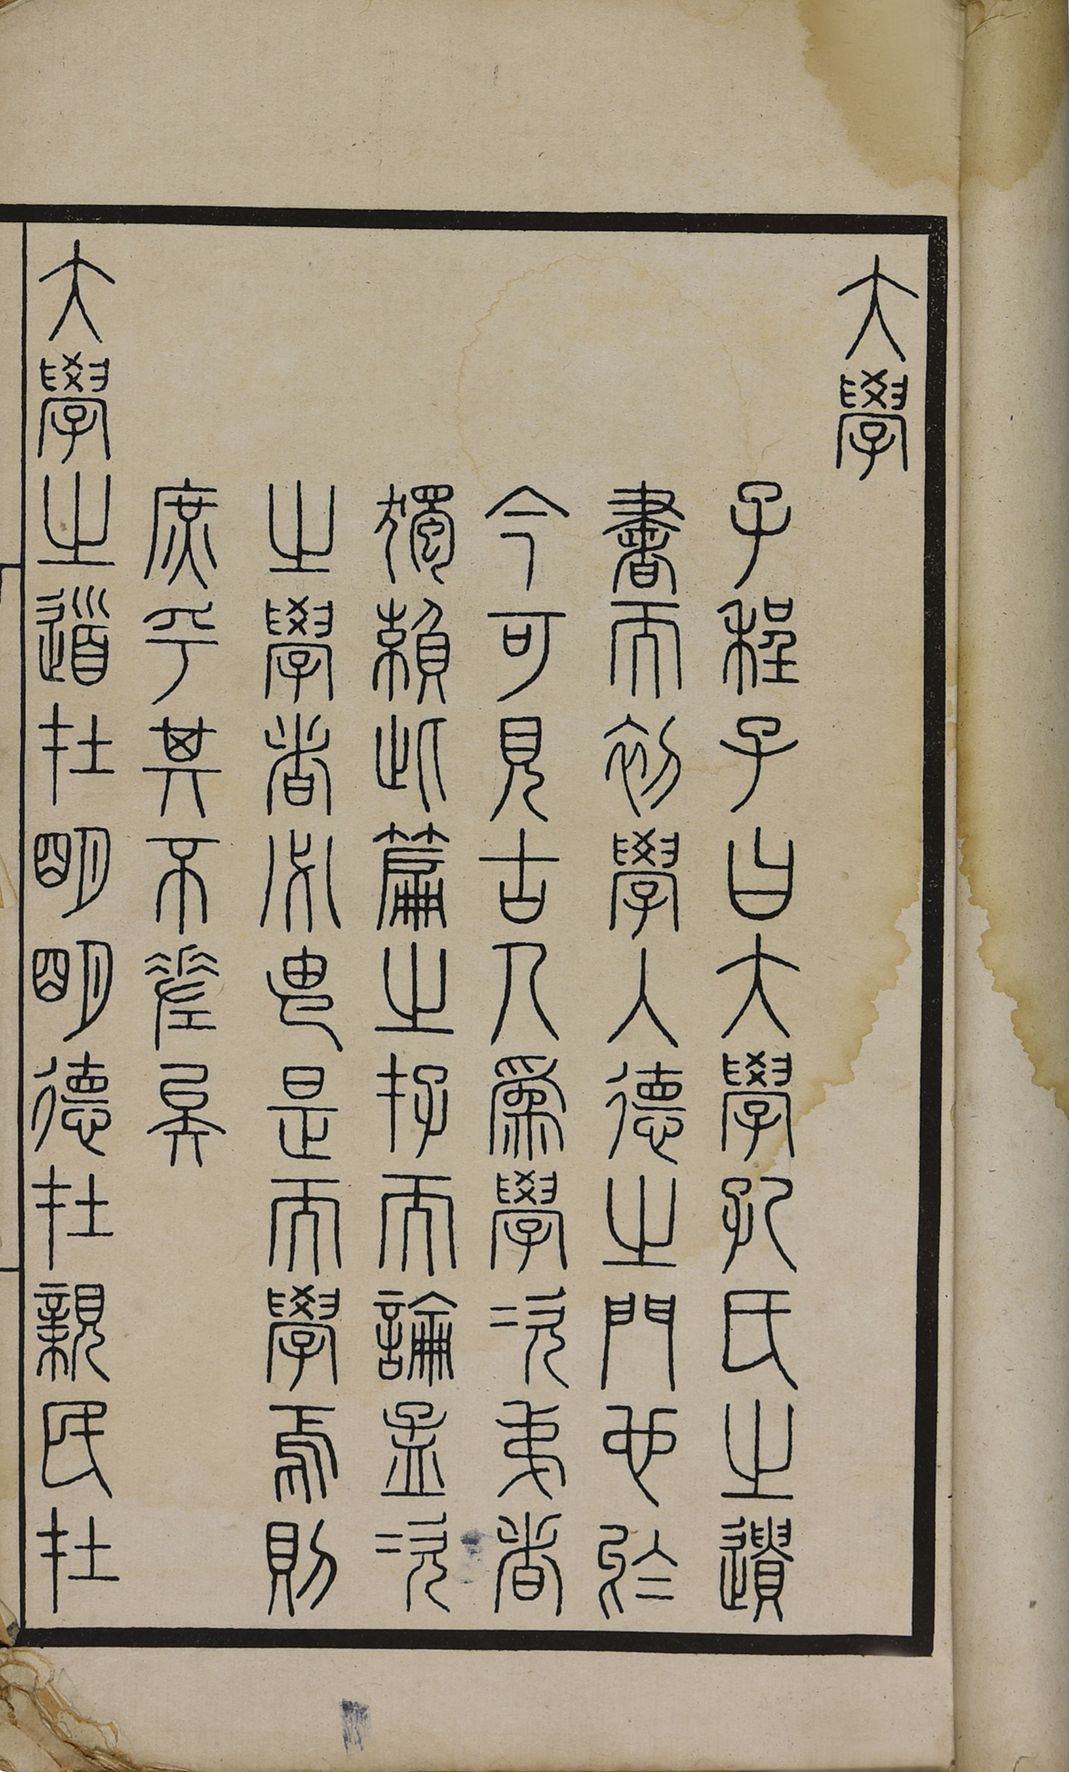 大學
子程子曰大學孔氏之遺
書而初學入德之門也於
今可見古人為學次弟者
獨賴此篇之存而論孟次
之學者必由是而學焉則
庶乎其不差矣
大學之道在明明德在親民在